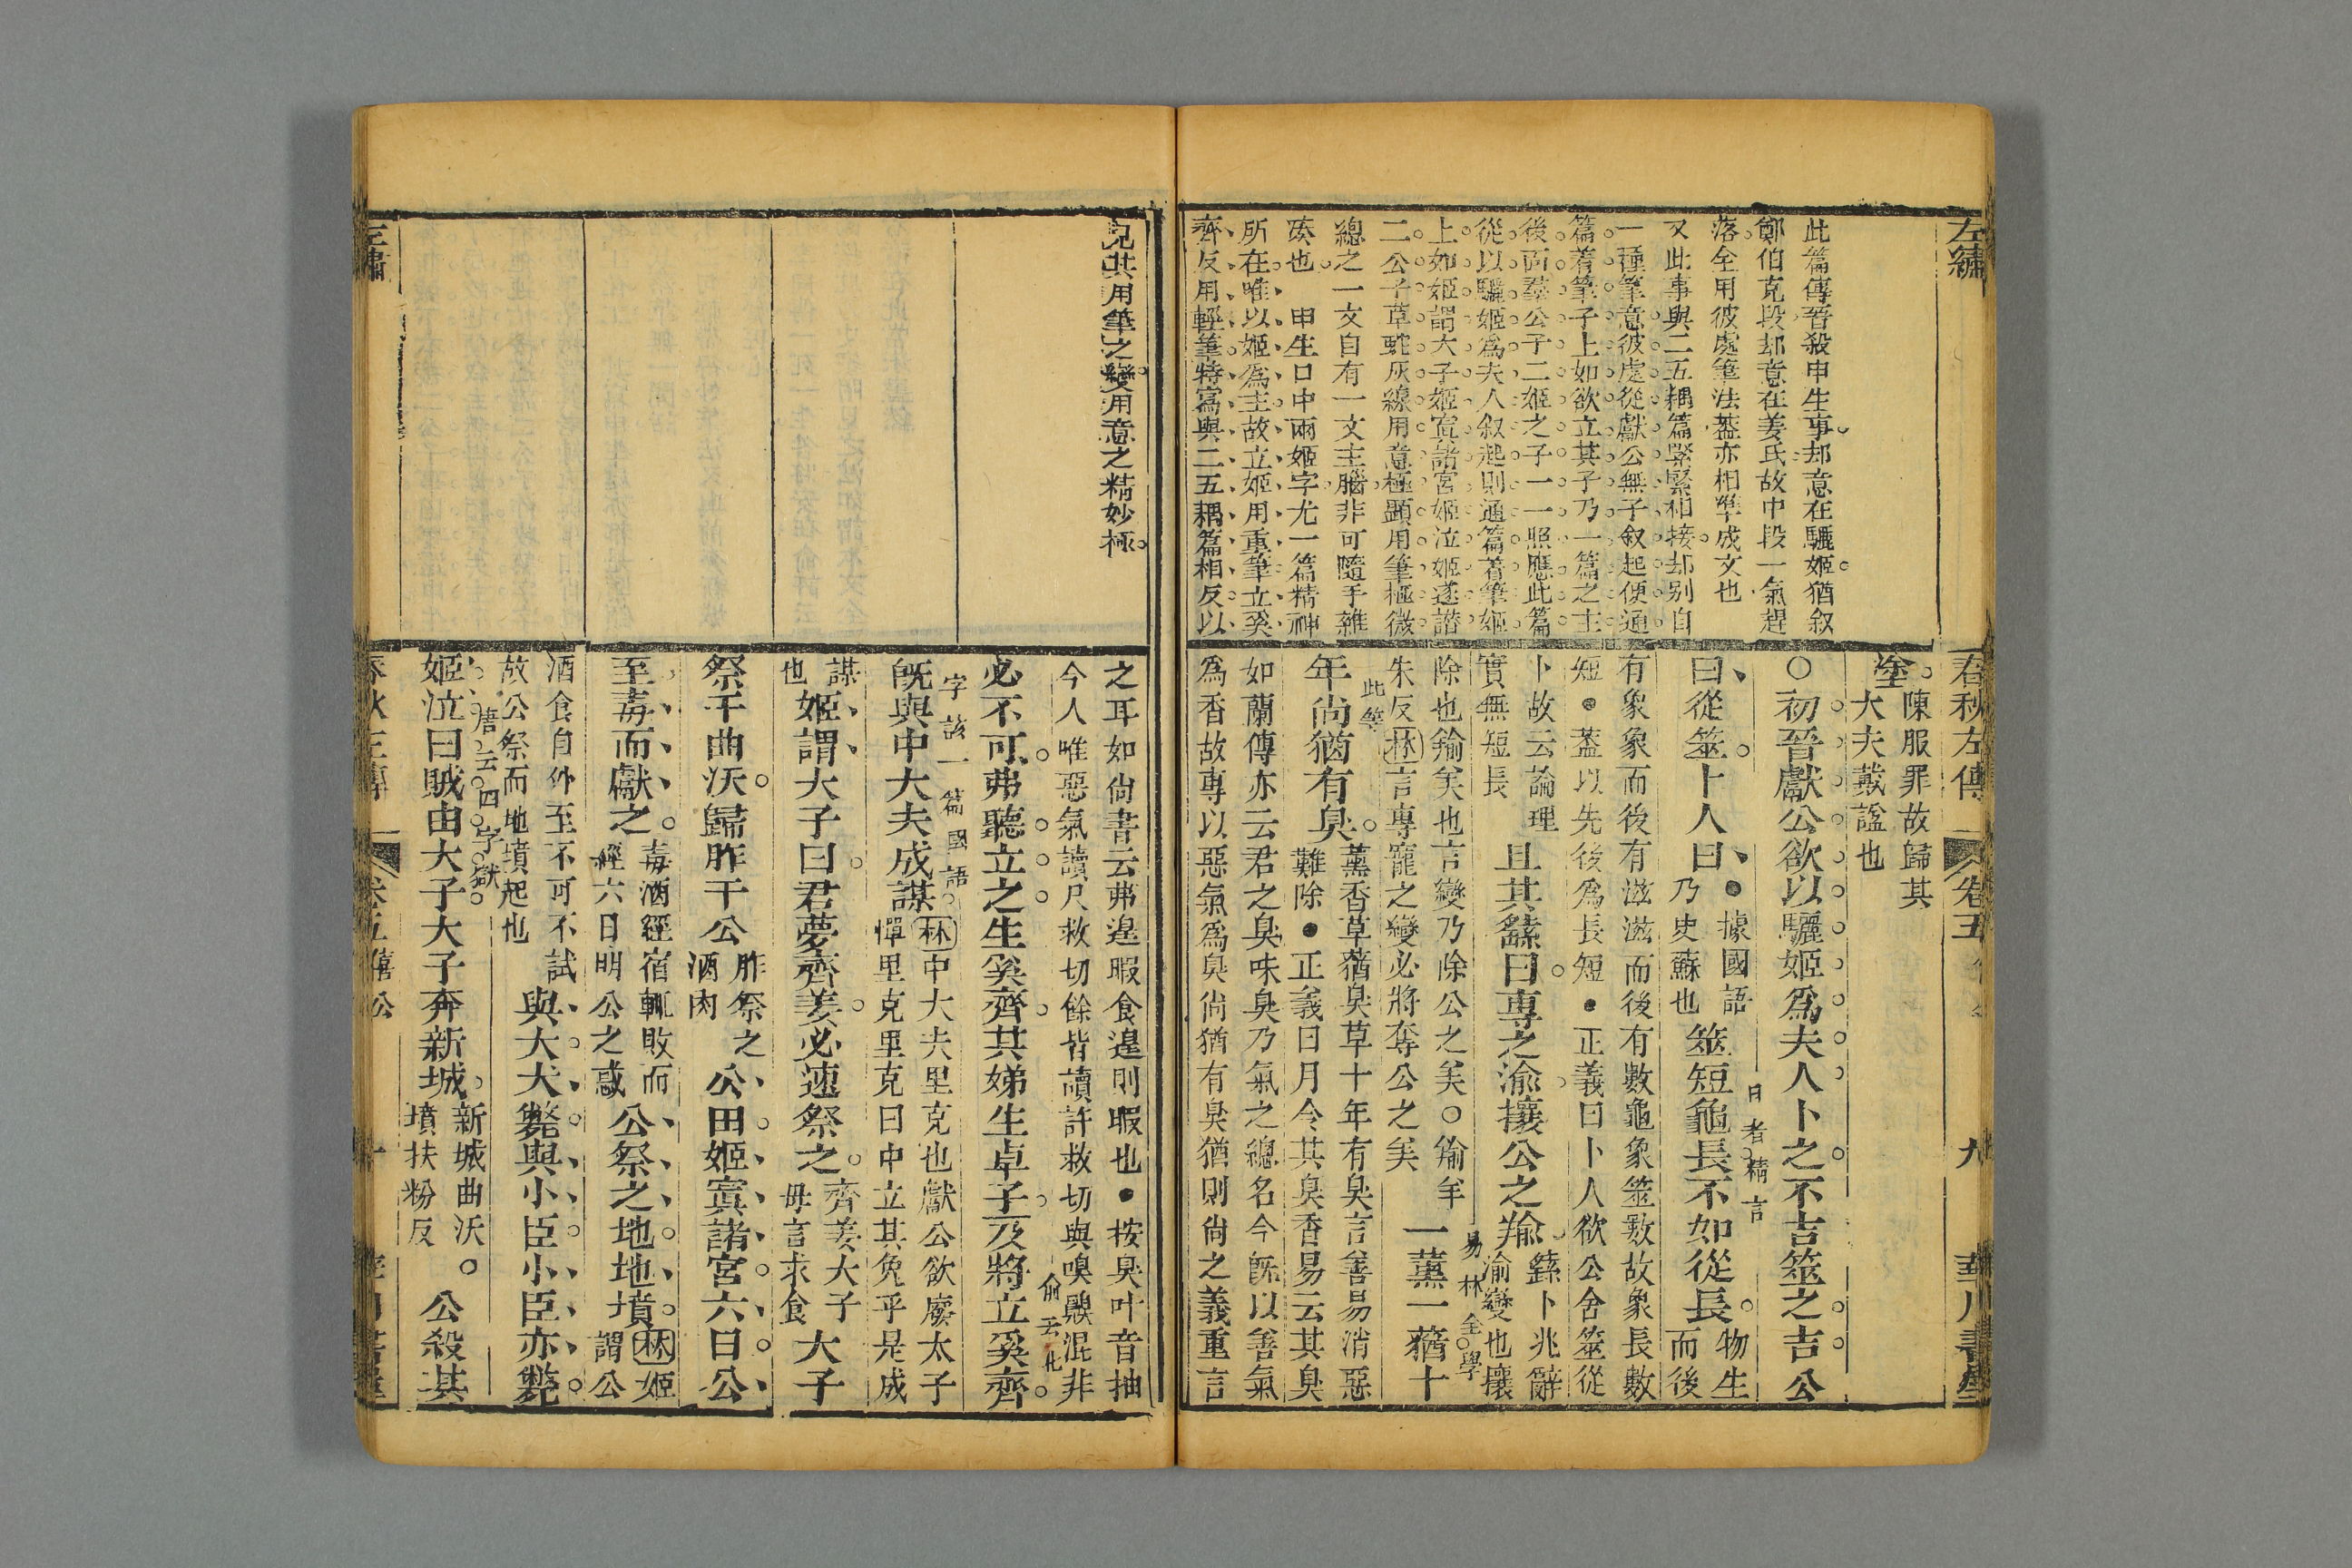 左繡
此篇傳晉殺申生事却意在驪姬猶叙
鄭伯克段却意在姜氏故中段一氣趕
落全用彼處筆法葢亦相準成文也
又此事與二五耦篇緊緊相接却别自
一種筆意彼處從獻公無子叙起便通
篇着筆子上如欲立其子乃一篇之主
後而羣公子二姬之子一一照應此篇
從以驪姬爲夫人叙起則通篇着筆姬
上如姬謂大子姬寘諸宮姬泣姬遂譖
二公子草蛇灰線用意極顯用筆極微
總之一文自有一文主腦非可隨手雜
湊也　申生口中兩姬字尤一篇精神
所在唯以姬爲主故立姬用重筆立奚
齊反用輕筆特寫與二五耦篇相反以
春秋左傳　卷五　九　華川書屋
塗陳服罪故歸其
大夫戴謚也
○初晉獻公欲以驪姬爲夫人卜之不吉筮之吉公
曰從筮卜人曰●據國語
乃史蘇也筮短龜長不如從長物生
而後
曰者精言
有象象而後有滋滋而後有數龜象筮數故象長數
短●葢以先後爲長短●正義曰卜人欲公舍筮從
卜故云論理
實無短長且其繇曰專之渝攘公之羭繇卜兆辭
渝變也攘
易林全學
除也羭美也言變乃除公之美○羭羊
朱反林言專寵之變必將奪公之美一薰一蕕十
此等
年尚猶有臭薰香草蕕臭草十年有臭言善易消惡
難除●正義曰月令其臭香易云其臭
如蘭傳亦云君之臭味臭乃氣之總名今旣以善氣
爲香故專以惡氣爲臭尚猶有臭猶則尚之義重言
見其用筆之變用意之精妙極
之耳如尚書云弗遑暇食遑則暇也●按臭叶音抽
今人唯惡氣讀尺救切餘皆讀許救切與嗅齅混非
俞云化
必不可弗聽立之生奚齊其娣生卓子及將立奚齊
字該一篇國語
旣與中大夫成謀林中大夫里克也獻公欲廢太子
憚里克里克曰中立其免乎是成
謀
也姬謂大子曰君夢齊姜必速祭之齊姜大子
母言求食大子
祭于曲沃歸胙于公胙祭之
酒肉公田姬寘諸宮六日公
至毒而獻之毒酒經宿輒敗而
經六日明公之惑公祭之地地墳林姬
謂公
酒食自外至不可不試
故公祭而地墳起也與犬犬斃與小臣小臣亦斃
唐云四字獄
姬泣曰賊由大子大子奔新城新城曲沃
墳扶粉反○公殺其
左繡
春秋左傳　卷五僖公　十　華川書屋